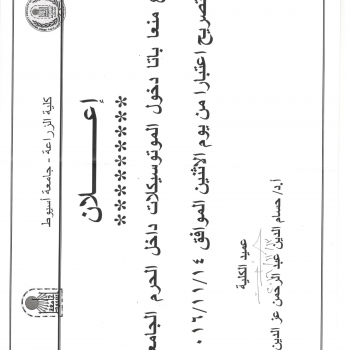 كلية الزراعة - جامعة أسيوط
إعـــــلان
********
منعا باتا دخول الموتوسيكلات داخل الحرم
تصريح اعتبارا من يوم الاثنين الموافق ٠١٦/١١/١٤
عميد الكلية
أ.د/ حسام الدين عبد الرحمن عز الدين